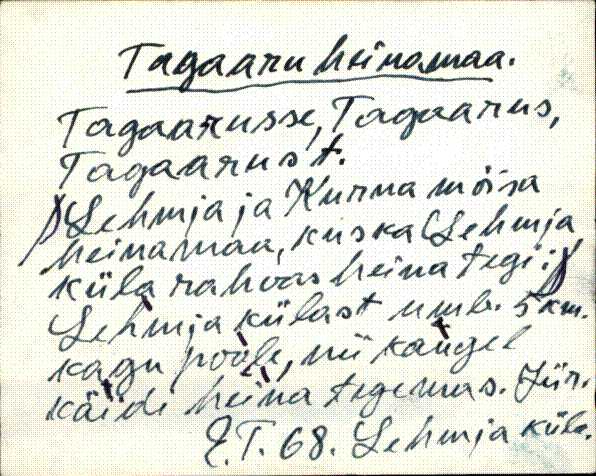 Tagaaru heinamaa.
Tagaarusse, Tagaarus,
Tagaarust.
Lehmja ja Kurna mõisa
heinamaa, kus ka (Lehmja
küla rahvas heina tegi:)
Lehmja külast umb. 5 km.
kagu poole, nii kaugel
käidi heina tegemas. Jür.
E.T. 68. Lehmja küla.